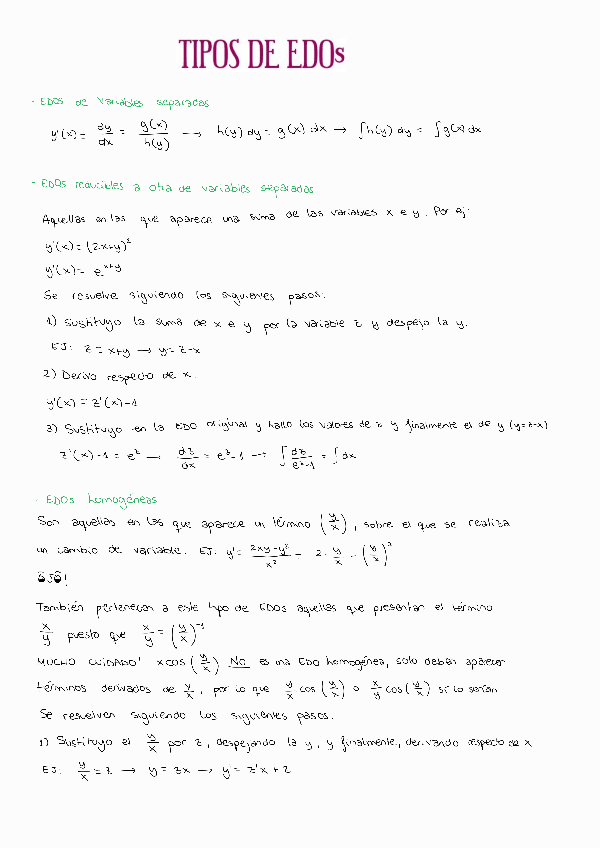 TIPOS DE EDOs
- EDOs de variables separadas
y'(x) = dy/dx = g(x)/h(y) → h(y) dy = g(x) dx → ∫h(y) dy = ∫g(x) dx
- EDOs reducibles a otra de variables separadas
Aquellas en las que aparece una suma de las variables x e y. Por ej:
y'(x) = (2x+y)²
y'(x) = e^(x+y)
Se resuelve siguiendo los siguientes pasos:
1) Sustituyo la suma de x e y por la variable z y despejo la y.
EJ: z = x+y → y = z-x
2) Derivo respecto de x.
y'(x) = z'(x)-1
3) Sustituyo en la EDO original y hallo los valores de z y finalmente el de y (y=z-x)
z'(x)-1 = e^z → dz/dx = e^z-1 → ∫ dz/(e^z-1) = ∫ dx
- EDOs homogéneas
Son aquellas en las que aparece un término (y/x), sobre el que se realiza
un cambio de variable. EJ: y' = (2xy-y²)/x² = 2·y/x - (y/x)²
También pertenecen a este tipo de EDOs aquellas que presentan el término
x/y puesto que x/y = (y/x)^-1
MUCHO CUIDADO! x cos (y/x) NO es una EDO homogénea, solo deben aparecer
términos derivados de y/x, por lo que y/x cos (y/x) o x/y cos (y/x) sí lo serían
Se resuelven siguiendo los siguientes pasos:
1) Sustituyo el y/x por z, despejando la y, y finalmente, derivando respecto de x
EJ: y/x = z → y = zx → y = z'x + z